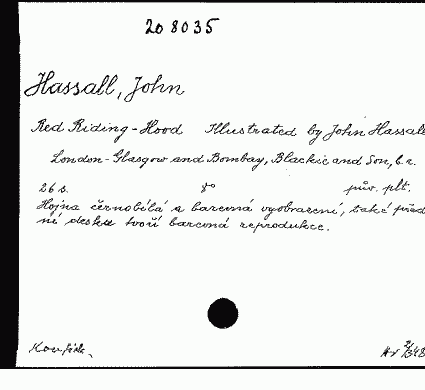 20 8035
Hassall, John
Red Riding-Hood Illustrated by John Hassall
London-Glasgow and Bombay, Blackie and Son, b.r.
26 s. 8° pův. plt.
Hojná černobílá a barevná vyobrazení, také před
ní deska tvoří barevná reprodukce.